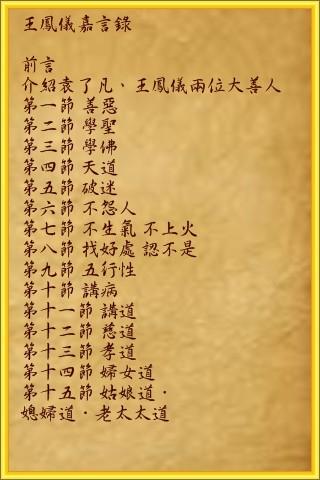 王鳳儀嘉言錄
前言
介紹袁了凡、王鳳儀兩位大善人
第一節 善惡
第二節 學聖
第三節 學佛
第四節 天道
第五節 破迷
第六節 不怨人
第七節 不生氣 不上火
第八節 找好處 認不是
第九節 五行性
第十節 講病
第十一節 講道
第十二節 慈道
第十三節 孝道
第十四節 婦女道
第十五節 姑娘道·
媳婦道·老太太道